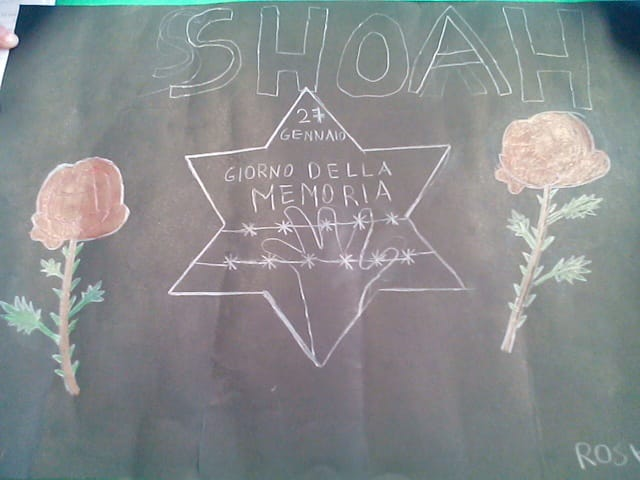 SHOAH
27
GENNAIO
GIORNO DELLA
MEMORIA